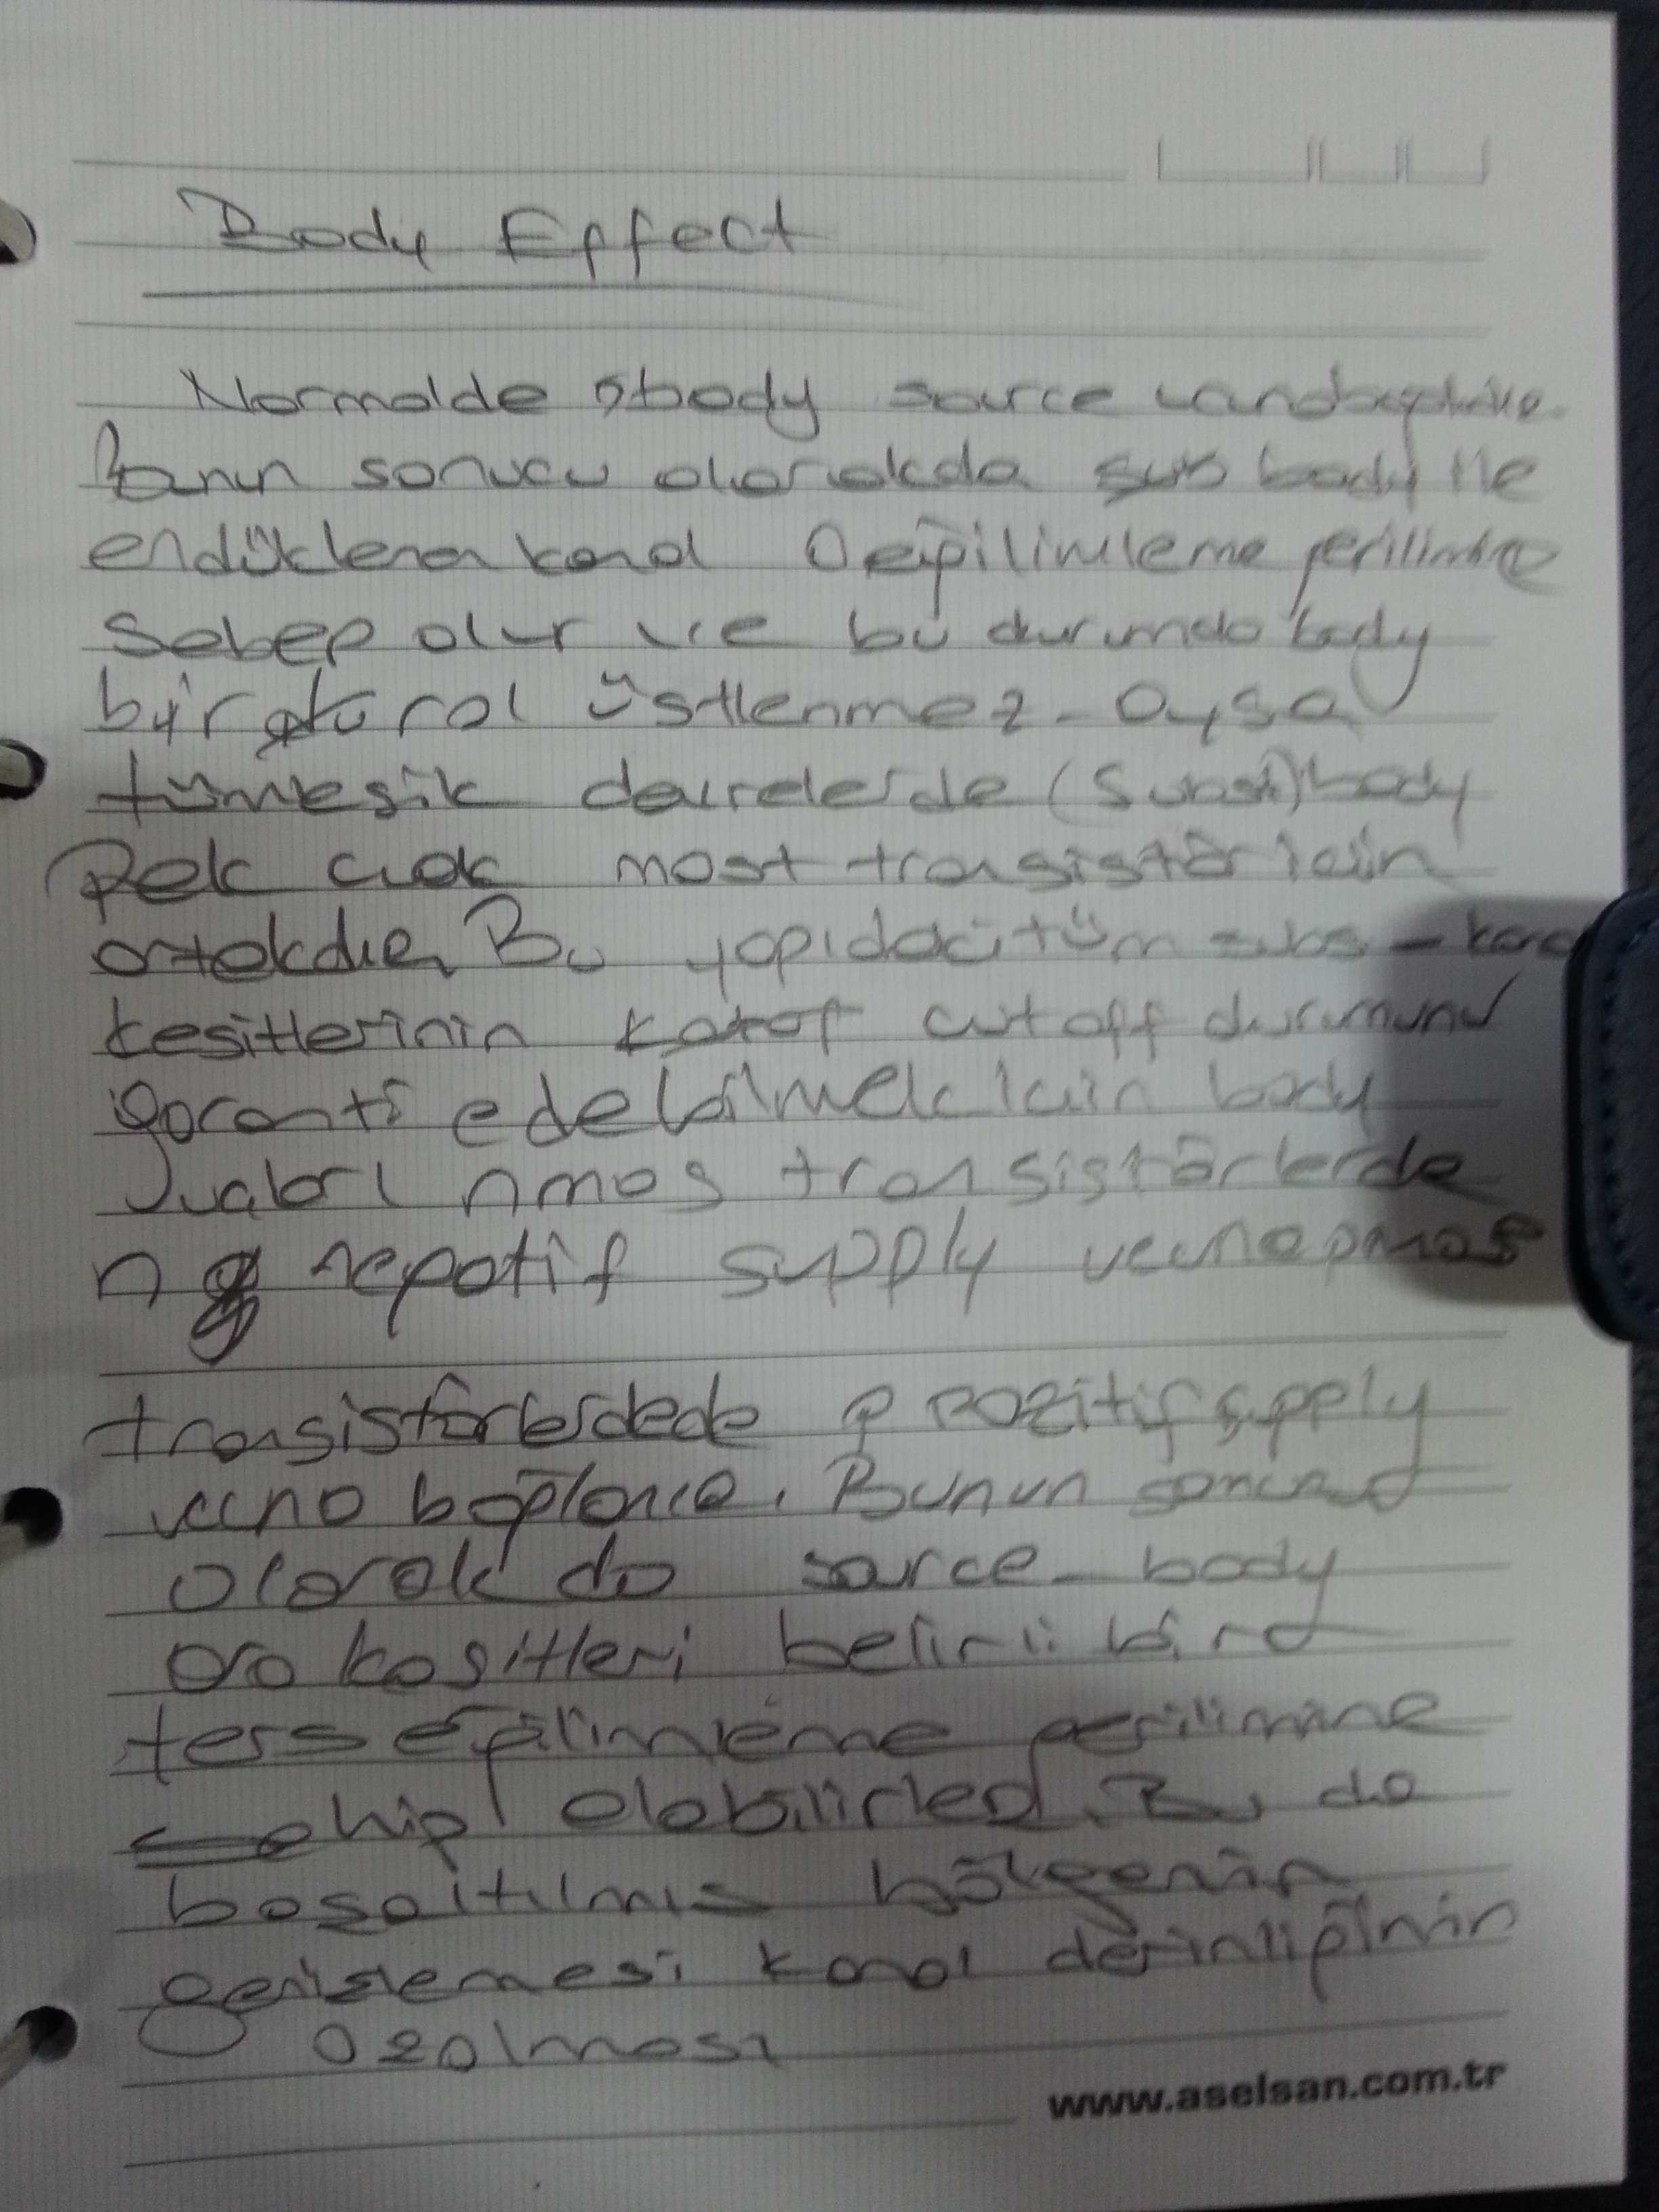 Body Effect
Normalde body source
Bunun sonucu olarakda sub body ile
endüklenen kanal 0 eğilimleme gerilimine
sebep olur ve bu durumda body
bir rol üstlenmez. Oysa
tümleşik devrelerde (Subst) body
Pek çok most transistör için
ortakdır. Bu yapıdaki tüm subs - kanal
kesitlerinin cutoff durumunu
garanti edebilmek için body
uçları nmos transistörlerde
n negatif supply ucuna pmos
transistörlerdede p pozitif supply
ucuna bağlanır. Bunun sonucu
olarak da source - body
ara kesitleri belirli bir
ters eğilimleme gerilimine
sahip olabilirler. Bu da
boşaltılmış bölgenin
genişlemesi kanal derinliğinin
azalması
www.aselsan.com.tr